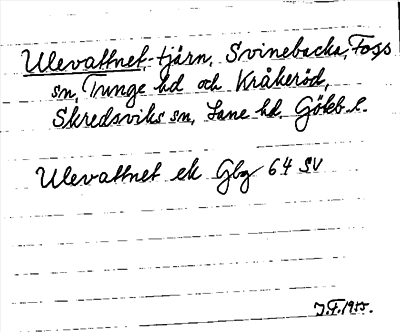 Ulevattnet, -tjärn, Svinebacka, Foss
sn, Tunge hd och Kråkeröd,
Skredsviks sn, Lane hd. Göteb. l.
Ulevattnet ek Gbg 64 SV
J.F. 1955.